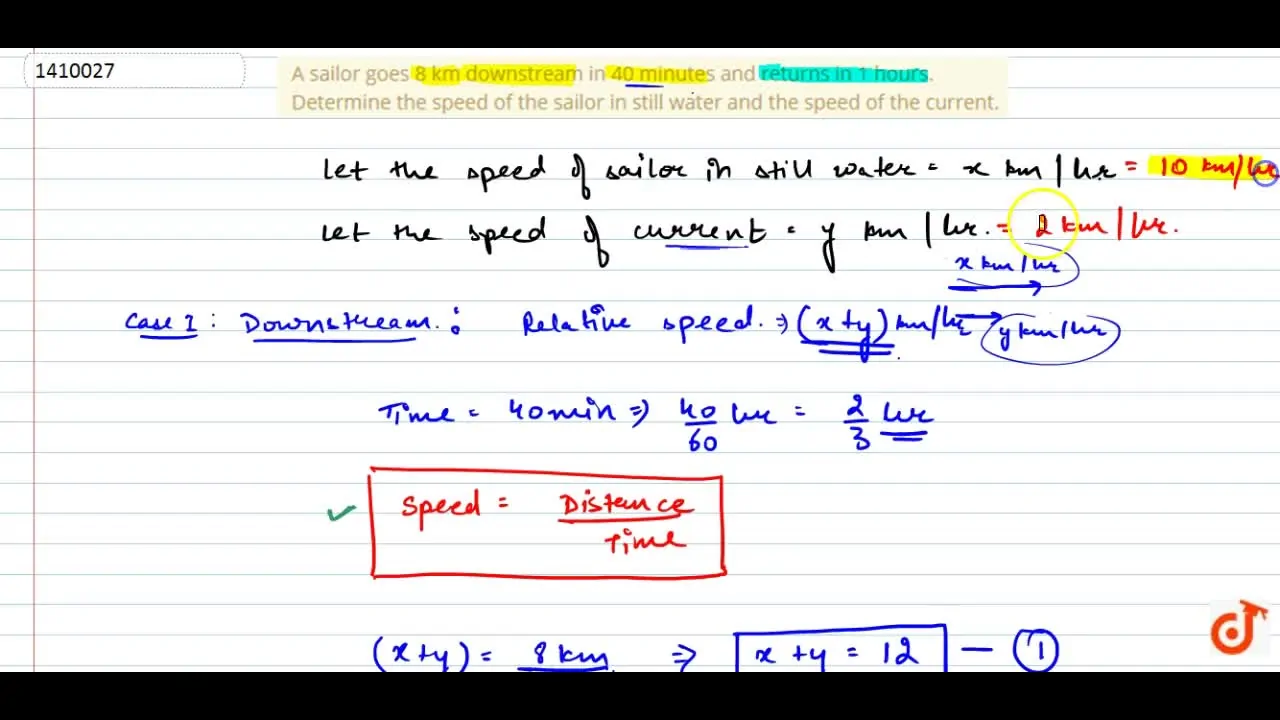 1410027
A sailor goes 8 km downstream in 40 minutes and returns in 1 hours.
Determine the speed of the sailor in still water and the speed of the current.
Let the speed of sailor in still water = x km/hr = 10 km/hr
Let the speed of current = y km/hr. = 2 km/hr.
x km/hr
Case 1 : Downstream : Relative speed. ⇒ (x+y) km/hr y km/hr
Time = 40 min ⇒ 40/60 hr = 2/3 hr
✓ Speed = Distance/Time
(x+y) = 8 km ⇒ x + y = 12 — 1